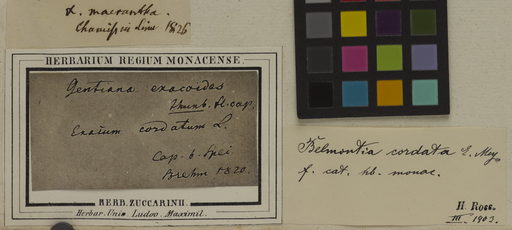 L. macrantha.
Chamiss in Linn 1826
HERBARIUM REGIUM MONACENSE.
Gentiana exacoides
Thunb. fl. cap.
Exaium cordatum L.
Cap. b. Spei
Brehm 1820.
HERB. ZUCCARINII.
Herbar. Univ. Ludov. Maximil.
Belmontia cordata E. Mey
f. cat. hb. monac.
H. Ross.
III. 1903.